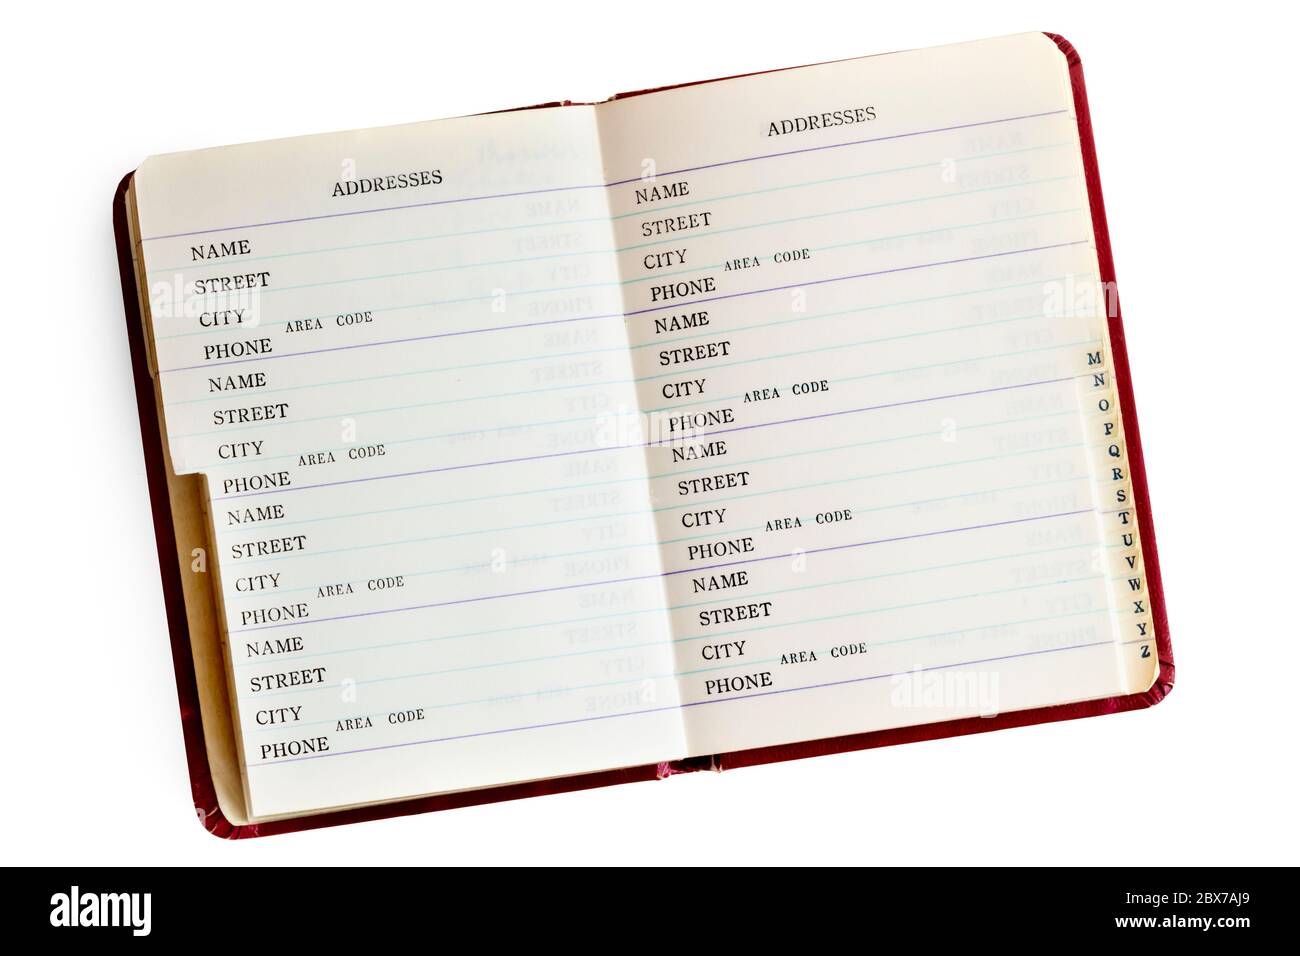 ADDRESSES
NAME
STREET
CITY
AREA CODE
PHONE
NAME
STREET
CITY
AREA CODE
PHONE
NAME
STREET
CITY
AREA CODE
PHONE
NAME
STREET
CITY
AREA CODE
PHONE
ADDRESSES
NAME
STREET
CITY
AREA CODE
PHONE
NAME
STREET
CITY
AREA CODE
PHONE
NAME
STREET
CITY
AREA CODE
PHONE
NAME
STREET
CITY
AREA CODE
PHONE
M
N
O
P
Q
R
S
T
U
V
W
X
Y
Z
alamy
alamy
Image ID: 2BX7AJ9
www.alamy.com